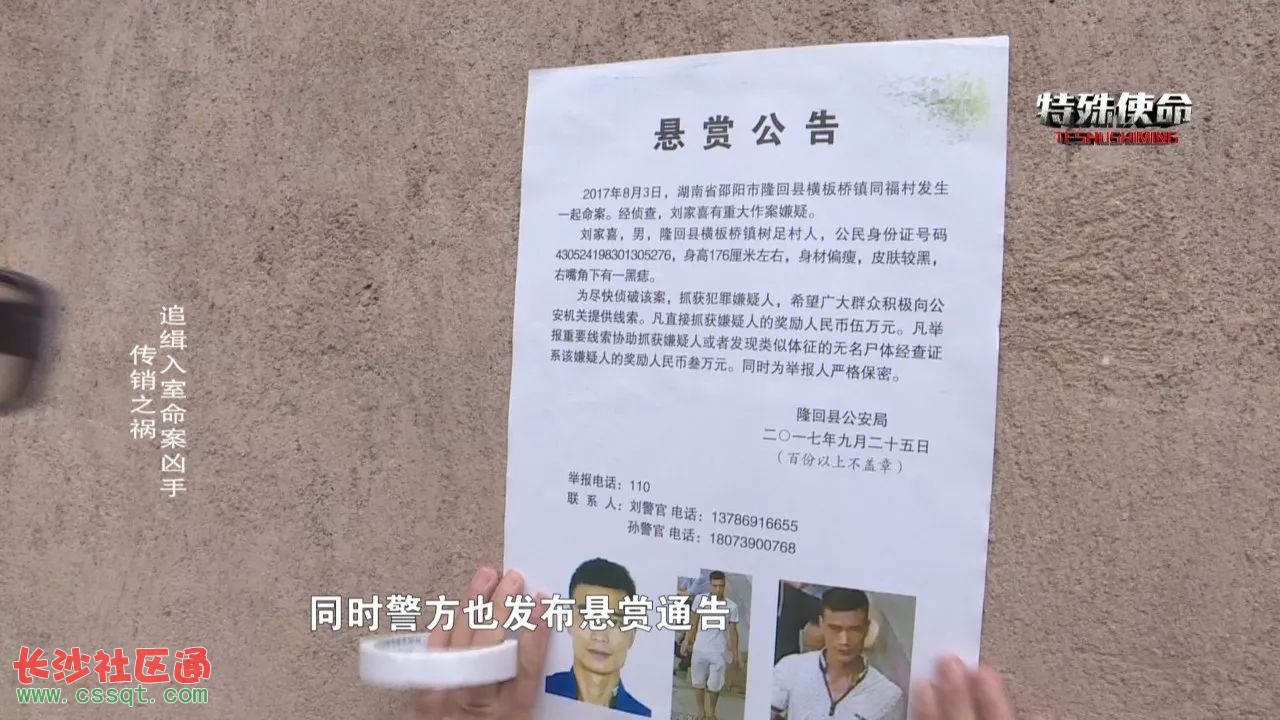 特殊使命
TESHUSHIMING
悬赏公告
2017年8月3日，湖南省邵阳市隆回县横板桥镇同福村发生
一起命案。经侦查，刘家喜有重大作案嫌疑。
刘家喜，男，隆回县横板桥镇树足村人，公民身份证号码
430524198301305276，身高176厘米左右，身材偏瘦，皮肤较黑，
右嘴角下有一黑痣。
为尽快侦破该案，抓获犯罪嫌疑人，希望广大群众积极向公
安机关提供线索。凡直接抓获嫌疑人的奖励人民币伍万元。凡举
报重要线索协助抓获嫌疑人或者发现类似体征的无名尸体经查证
系该嫌疑人的奖励人民币叁万元。同时为举报人严格保密。
隆回县公安局
二〇一七年九月二十五日
（百份以上不盖章）
举报电话：110
联系人：刘警官 电话：13786916655
孙警官 电话：18073900768
追缉入室命案凶手
传销之祸
同时警方也发布悬赏通告
长沙社区通
www.cssqt.com